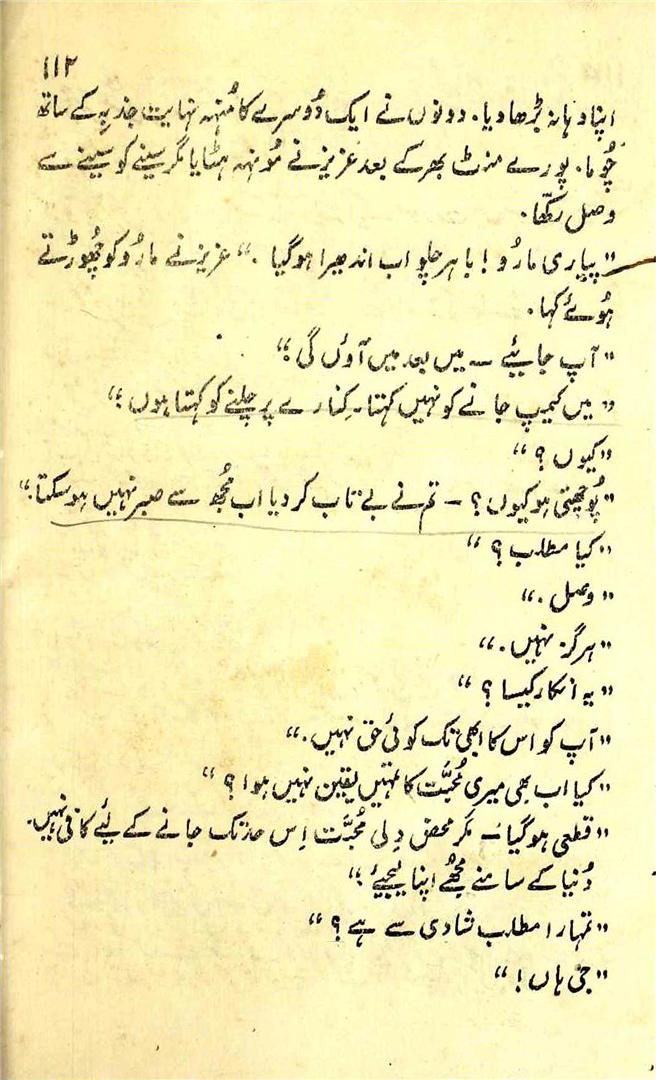 ۱۱۲
اپنا دہانہ بڑھا دیا۔ دونوں نے ایک دُوسرے کا مُنہہ نہایت جذبہ کے ساتھ
چُوما۔ پورے منٹ بھر کے بعد عزیز نے مُونہہ ہٹایا مگر سینے کو سینے سے
وصل رکھّا۔
"پیاری مارُو! باہر چلو اب اندھیرا ہوگیا۔" عزیز نے مارُو کو چُھوڑتے
ہُوئے کہا۔
"آپ جائیے ــ میں بعد میں آوٴں گی؛"
"میں کیمپ جانے کو نہیں کہتا۔ کِنارے پر چلنے کو کہتا ہوں؛"
"کیوں؟"
"پُوچھتی ہو کیوں؟ ـ تم نے بے تاب کر دیا اب مُجھ سے صبر نہیں ہو سکتا۔"
"کیا مطلب؟"
"وصل۔"
"ہرگز نہیں۔"
"یہ انکار کیسا؟"
"آپ کو اس کا ابھی تک کوئی حق نہیں۔"
"کیا اب بھی میری مُحبَّت کا تمہیں یقین نہیں ہوا؟"
"قطعی ہوگیا ــ مگر محض دِلی مُحبَّت اِس حد تک جانے کے لیئے کافی نہیں۔
دُنیا کے سامنے مُجھے اپنا لیجیئے؛"
"تمہارا مطلب شادی سے ہے؟"
"جی ہاں!"